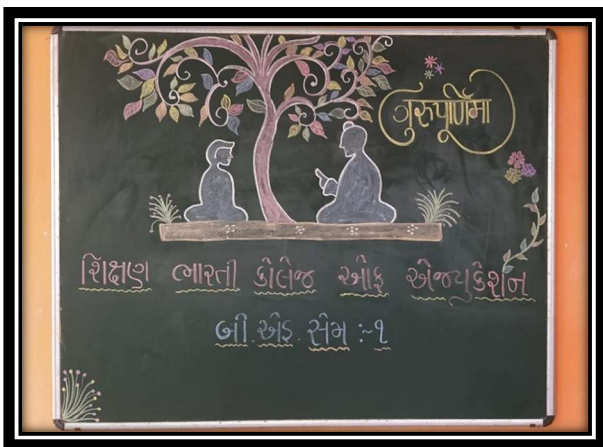 ગુરુપૂર્ણિમા
શિક્ષણ ભારતી કોલેજ ઓફ એજ્યુકેશન
બી.એડ. સેમ :- ૧